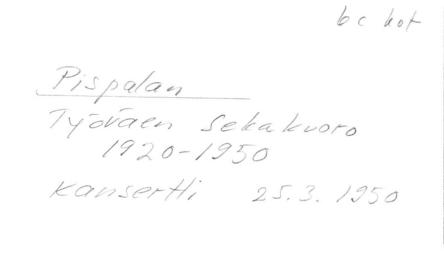 bc kot
Pispalan
Työväen Sekakuoro
1920-1950
Kansertti 25.3.1950